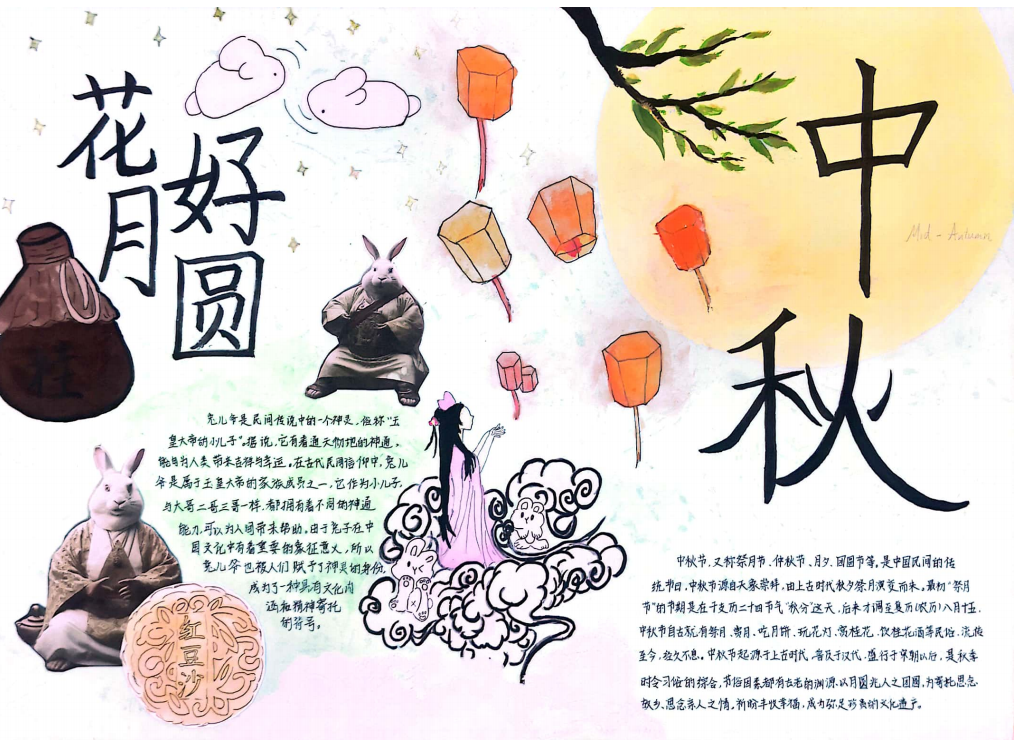 花好月圆
中秋
Mid - Autumn
桂
兔儿爷是民间传说中的一个神灵,俗称"玉
皇大帝的小儿子"。据说,它有着通天彻地的神通,
能够为人类带来吉祥与幸运。在古代民间信仰中,兔儿
爷是属于玉皇大帝的家族成员之一,它作为小儿子,
与大哥二哥三哥一样,都拥有着不同的神通
能力,可以为人间带来帮助。由于兔子在中
国文化中有着重要的象征意义,所以
兔儿爷也被人们赋予了神灵的身份,
成为了一种具有文化内
涵和精神寄托
的符号。
红豆沙
中秋节,又称祭月节、仲秋节、月夕、团圆节等,是中国民间的传
统节日。中秋节源自天象崇拜,由上古时代秋夕祭月演变而来。最初"祭月
节"的节期是在干支历二十四节气"秋分"这天,后来才调至夏历(农历)八月十五。
中秋节自古就有祭月、赏月、吃月饼、玩花灯、赏桂花、饮桂花酒等民俗,流传
至今,经久不息。中秋节起源于上古时代,普及于汉代,盛行于宋朝以后,是秋季
时令习俗的综合,节俗因素都有古老的渊源。以月圆兆人之团圆,为寄托思念
故乡、思念亲人之情,祈盼丰收幸福,成为弥足珍贵的文化遗产。